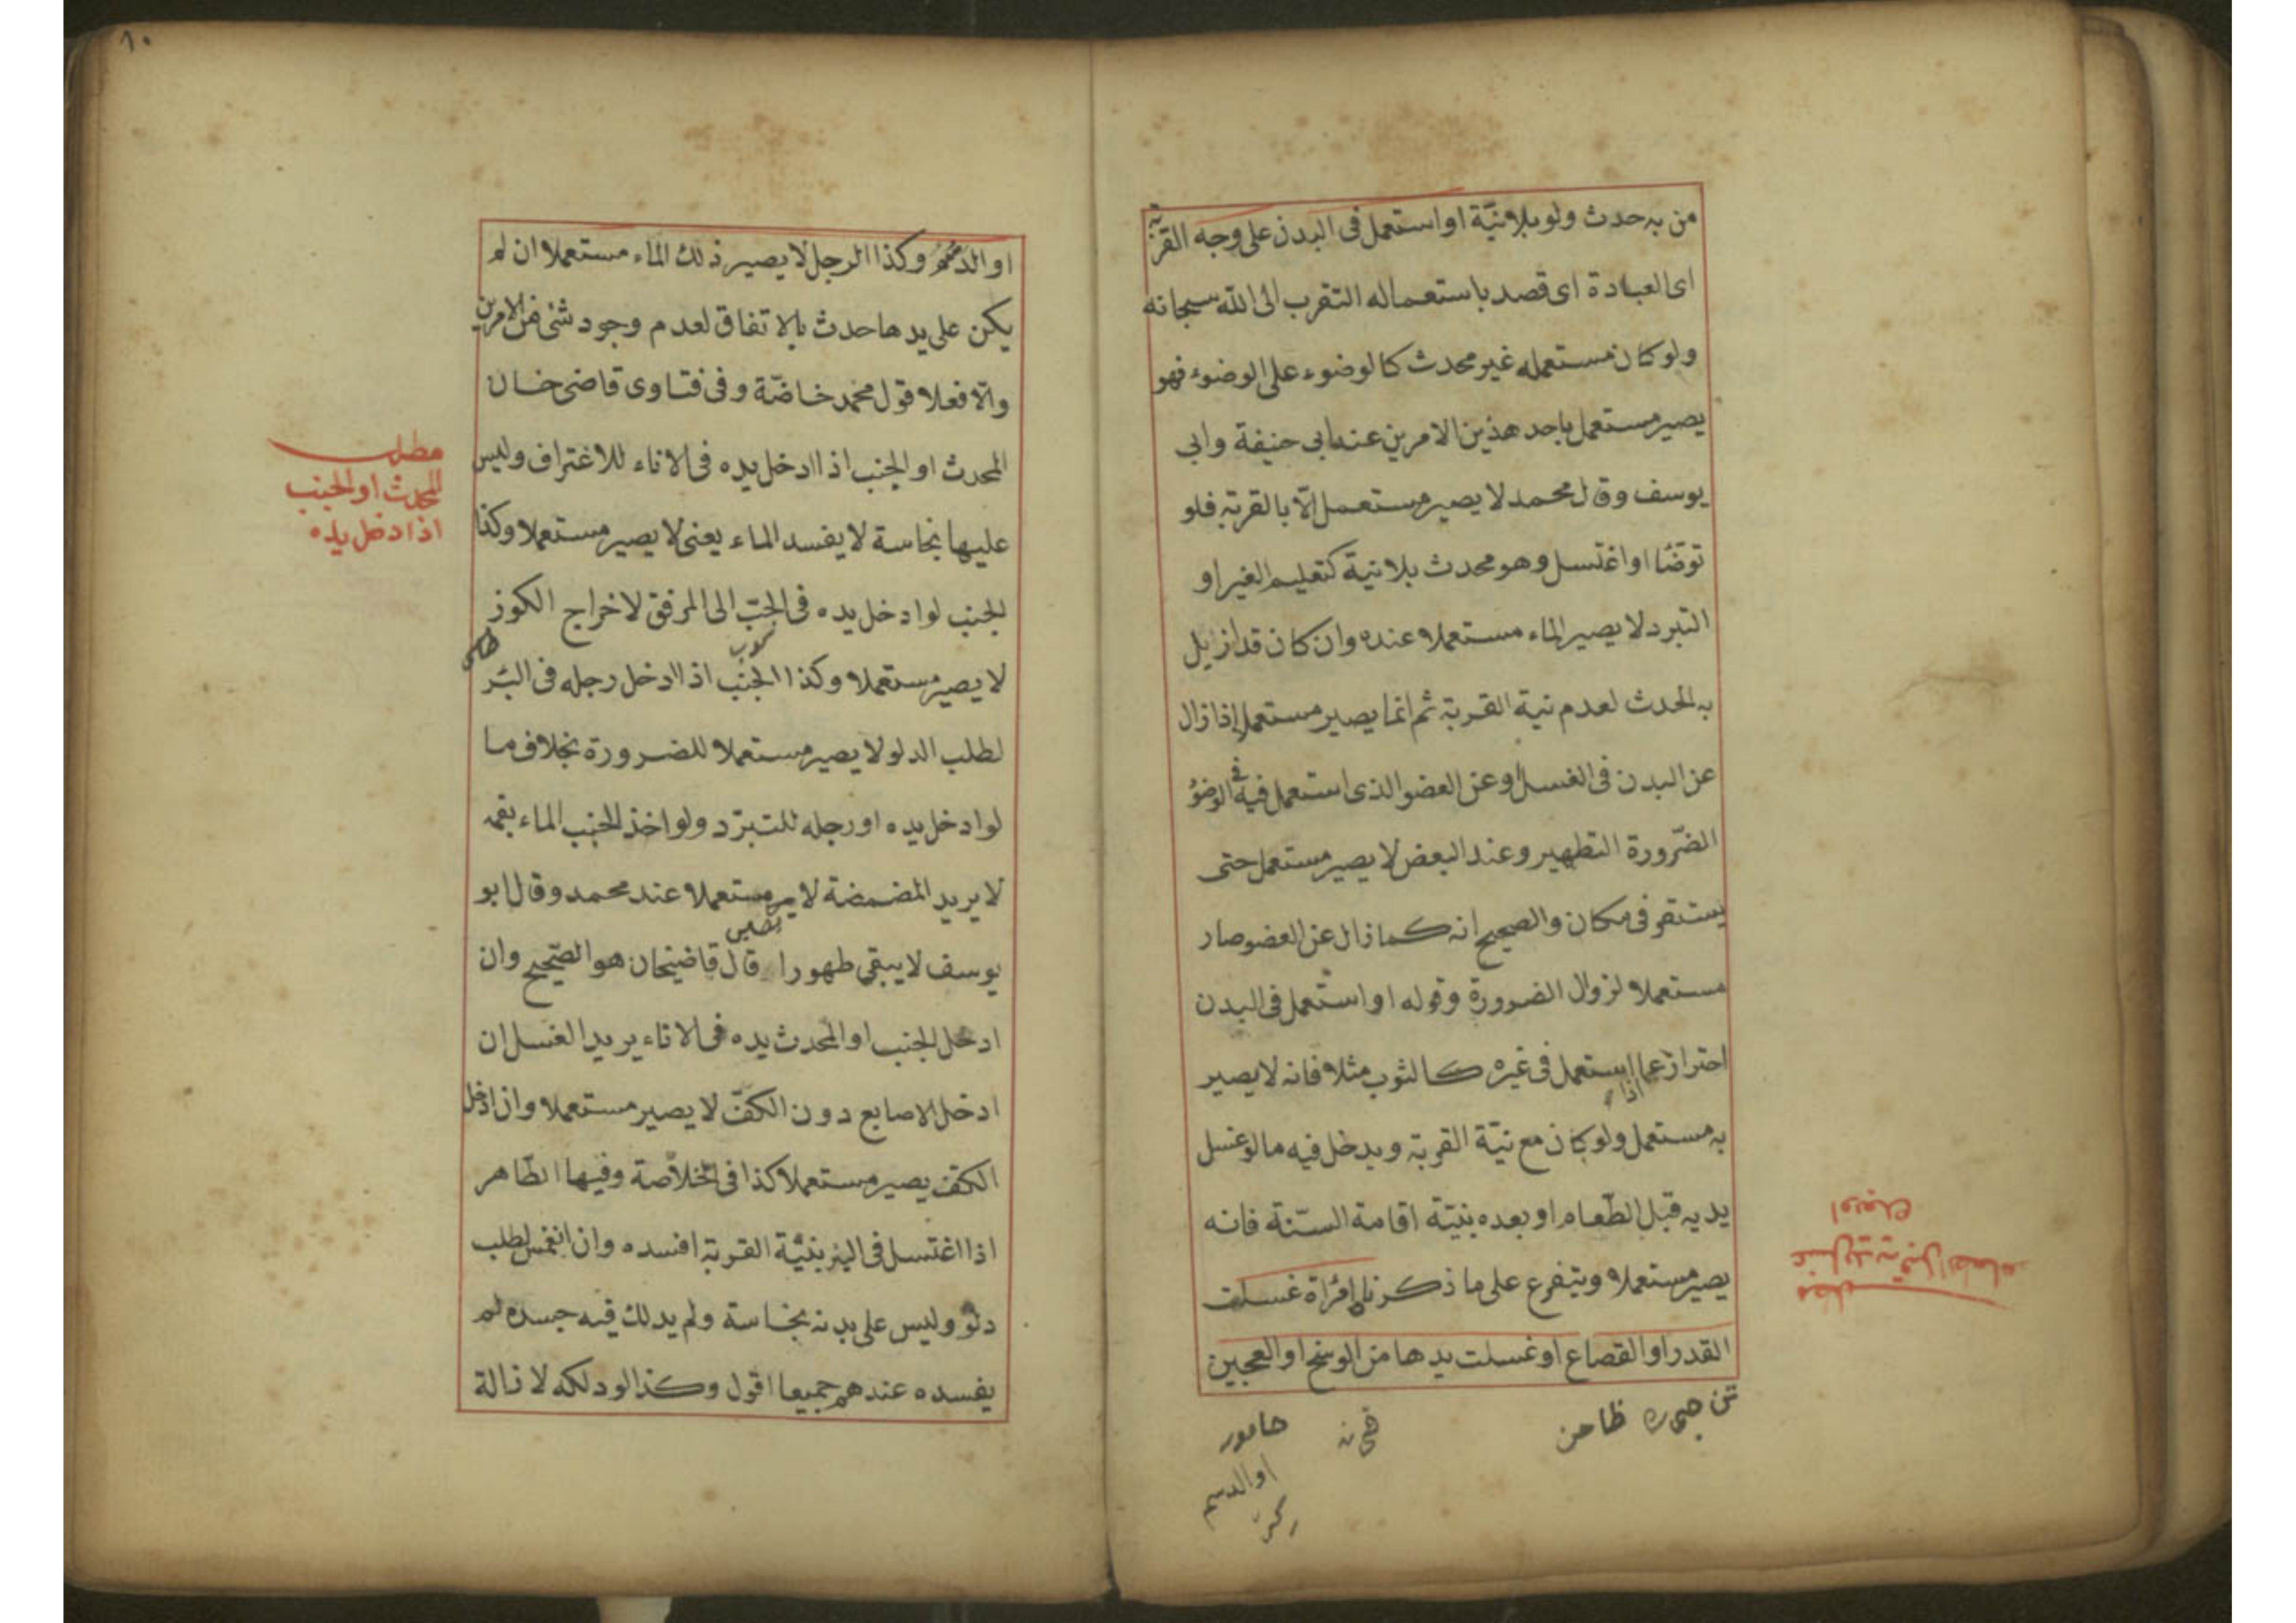 من به حدث ولو بلا نيّة او استعمل فى البدن على وجه القربة
اى العبادة اى قصد باستعماله التقرب الى الله سبحانه
ولو كان مستعمله غير محدث كالوضوء على الوضوء فهو
يصير مستعمل باحد هذين الامرين عند ابى حنيفة وابى
يوسف وقال محمد لا يصير مستعمل الّا بالقربة فلو
توضّا او اغتسل وهو محدث بلا نية كتعليم الغير او
التبرد لا يصير الماء مستعملا عنده وان كان قد ازيل
به الحدث لعدم نية القربة ثم انما يصير مستعملا اذا زال
عن البدن فى الغسل او عن العضو الذى استعمل فيه فى الوضوء
الضّرورة التطهير وعند البعض لا يصير مستعمل حتى
يستقر فى مكان والصحيح انه كما زال عن العضو صار
مستعملا لزوال الضرورة وقوله او استعمل فى البدن
احتراز عما اذا استعمل فى غيره كالثوب مثلا فانه لا يصير
به مستعمل ولو كان مع نيّة القربة ويدخل فيه ما لو غسل
يديه قبل الطّعام او بعده بنيّة اقامة السّنة فانه
يصير مستعملا ويتفرع على ما ذكرنا امرأة غسلت
القدر او القصاع او غسلت يدها من الوسخ او العجين
حامور
او الدسم
مطلب
غسل يديه قبل الطعام
او بعده
١٠
او الدسم وكذا الرجل لا يصير ذلك الماء مستعملا ان لم
يكن على يدها حدث بالاتفاق لعدم وجود شئ من الامرين
والّا فعلا قول محمد خاصّة وفى فتاوى قاضى خان
المحدث او الجنب اذا ادخل يده فى الاناء للاغتراف وليس
عليها نجاسة لا يفسد الماء يعنى لا يصير مستعملا وكذا
الجنب لو ادخل يده فى الجبّ الى المرفق لاخراج الكوز
لا يصير مستعملا وكذا الجنب اذا ادخل رجله فى البئر
لطلب الدلو لا يصير مستعملا للضرورة بخلاف ما
لو ادخل يده او رجله للتبرّد ولو اخذ الجنب الماء بفمه
لا يريد المضمضة لا يصير مستعملا عند محمد وقال ابو
يوسف لا يبقى طهورا قال قاضيخان هو الصّحيح وان
ادخل الجنب او المحدث يده فى الاناء يريد الغسل ان
ادخل الاصابع دون الكفّ لا يصير مستعملا وان ادخل
الكفّ يصير مستعملا كذا فى الخلاصة وفيها الطّاهر
اذا اغتسل فى البئر بنيّة القربة افسده وان انغمس لطلب
دلو وليس على بدنه نجاسة ولم يدلك فيه جسده لم
يفسده عندهم جميعا اقول وكذا لو دلكه لازالة
مطلب
المحدث او الجنب
اذا ادخل يده